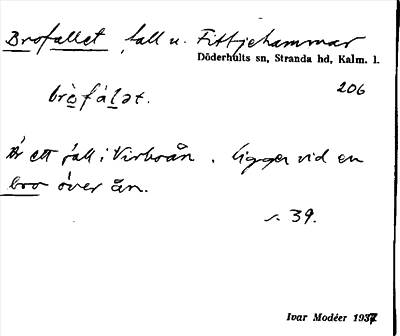 Brofallet, fall u. Fittjehammar
Döderhults sn, Stranda hd, Kalm. l.
206
brò̱fáḻət.
Är ett fall i Virboån. Ligger vid en
bro över ån.
s. 39.
Ivar Modéer 1937